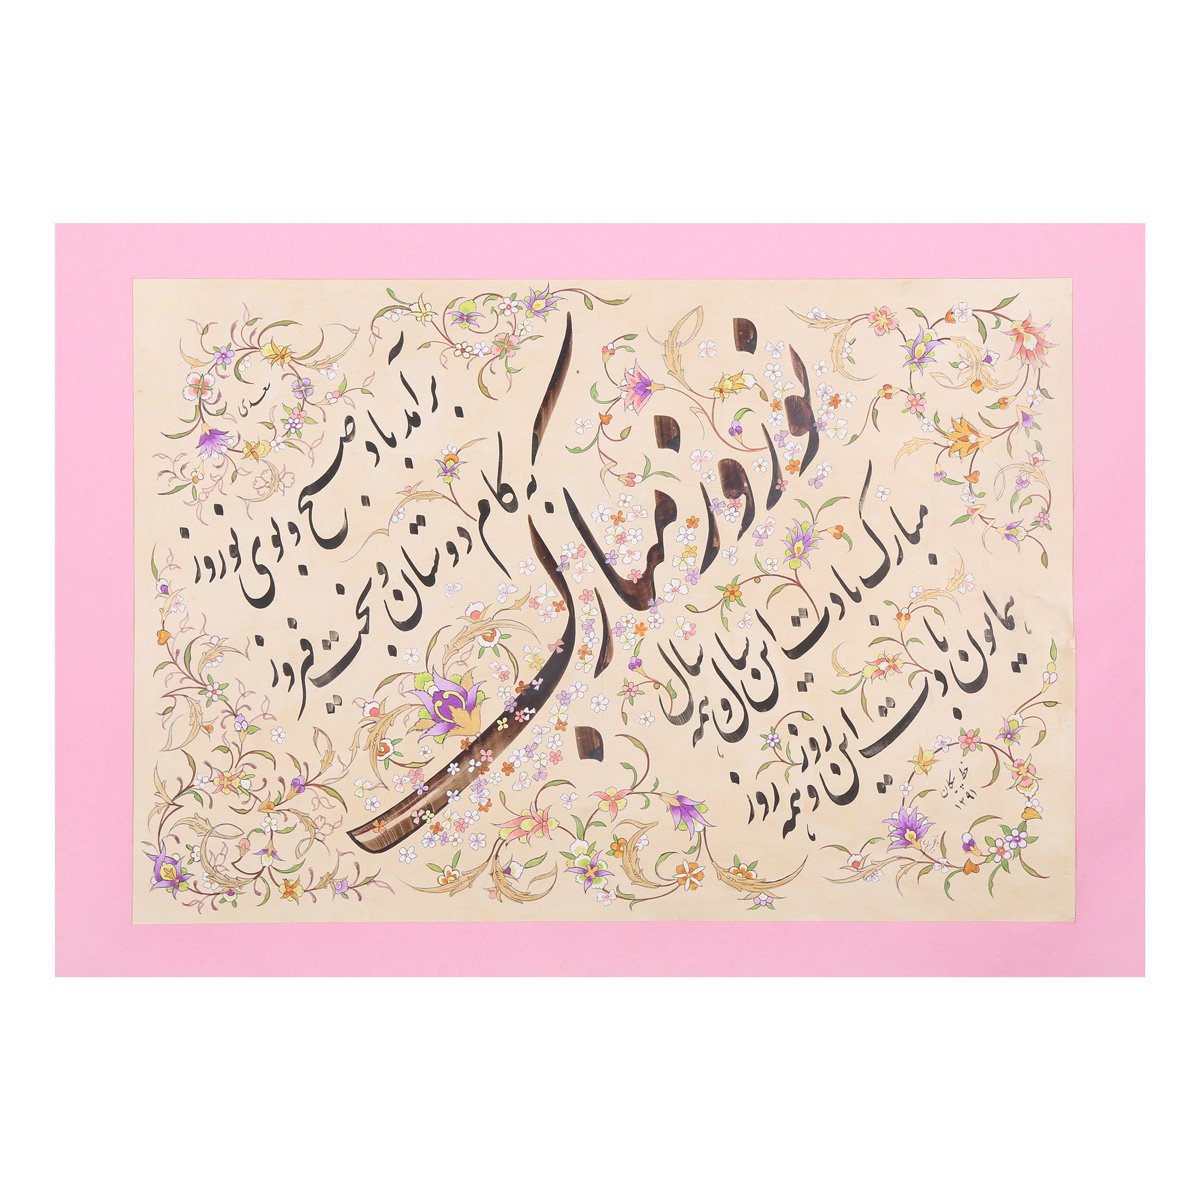 نوروز مبارک
برآمد باد صبح و بوی نوروز
به کام دوستان و بخت فیروز
مبارک بادت این سال و همه سال
همایون بادت این روز و همه روز
سعدی
۱۳۹۱